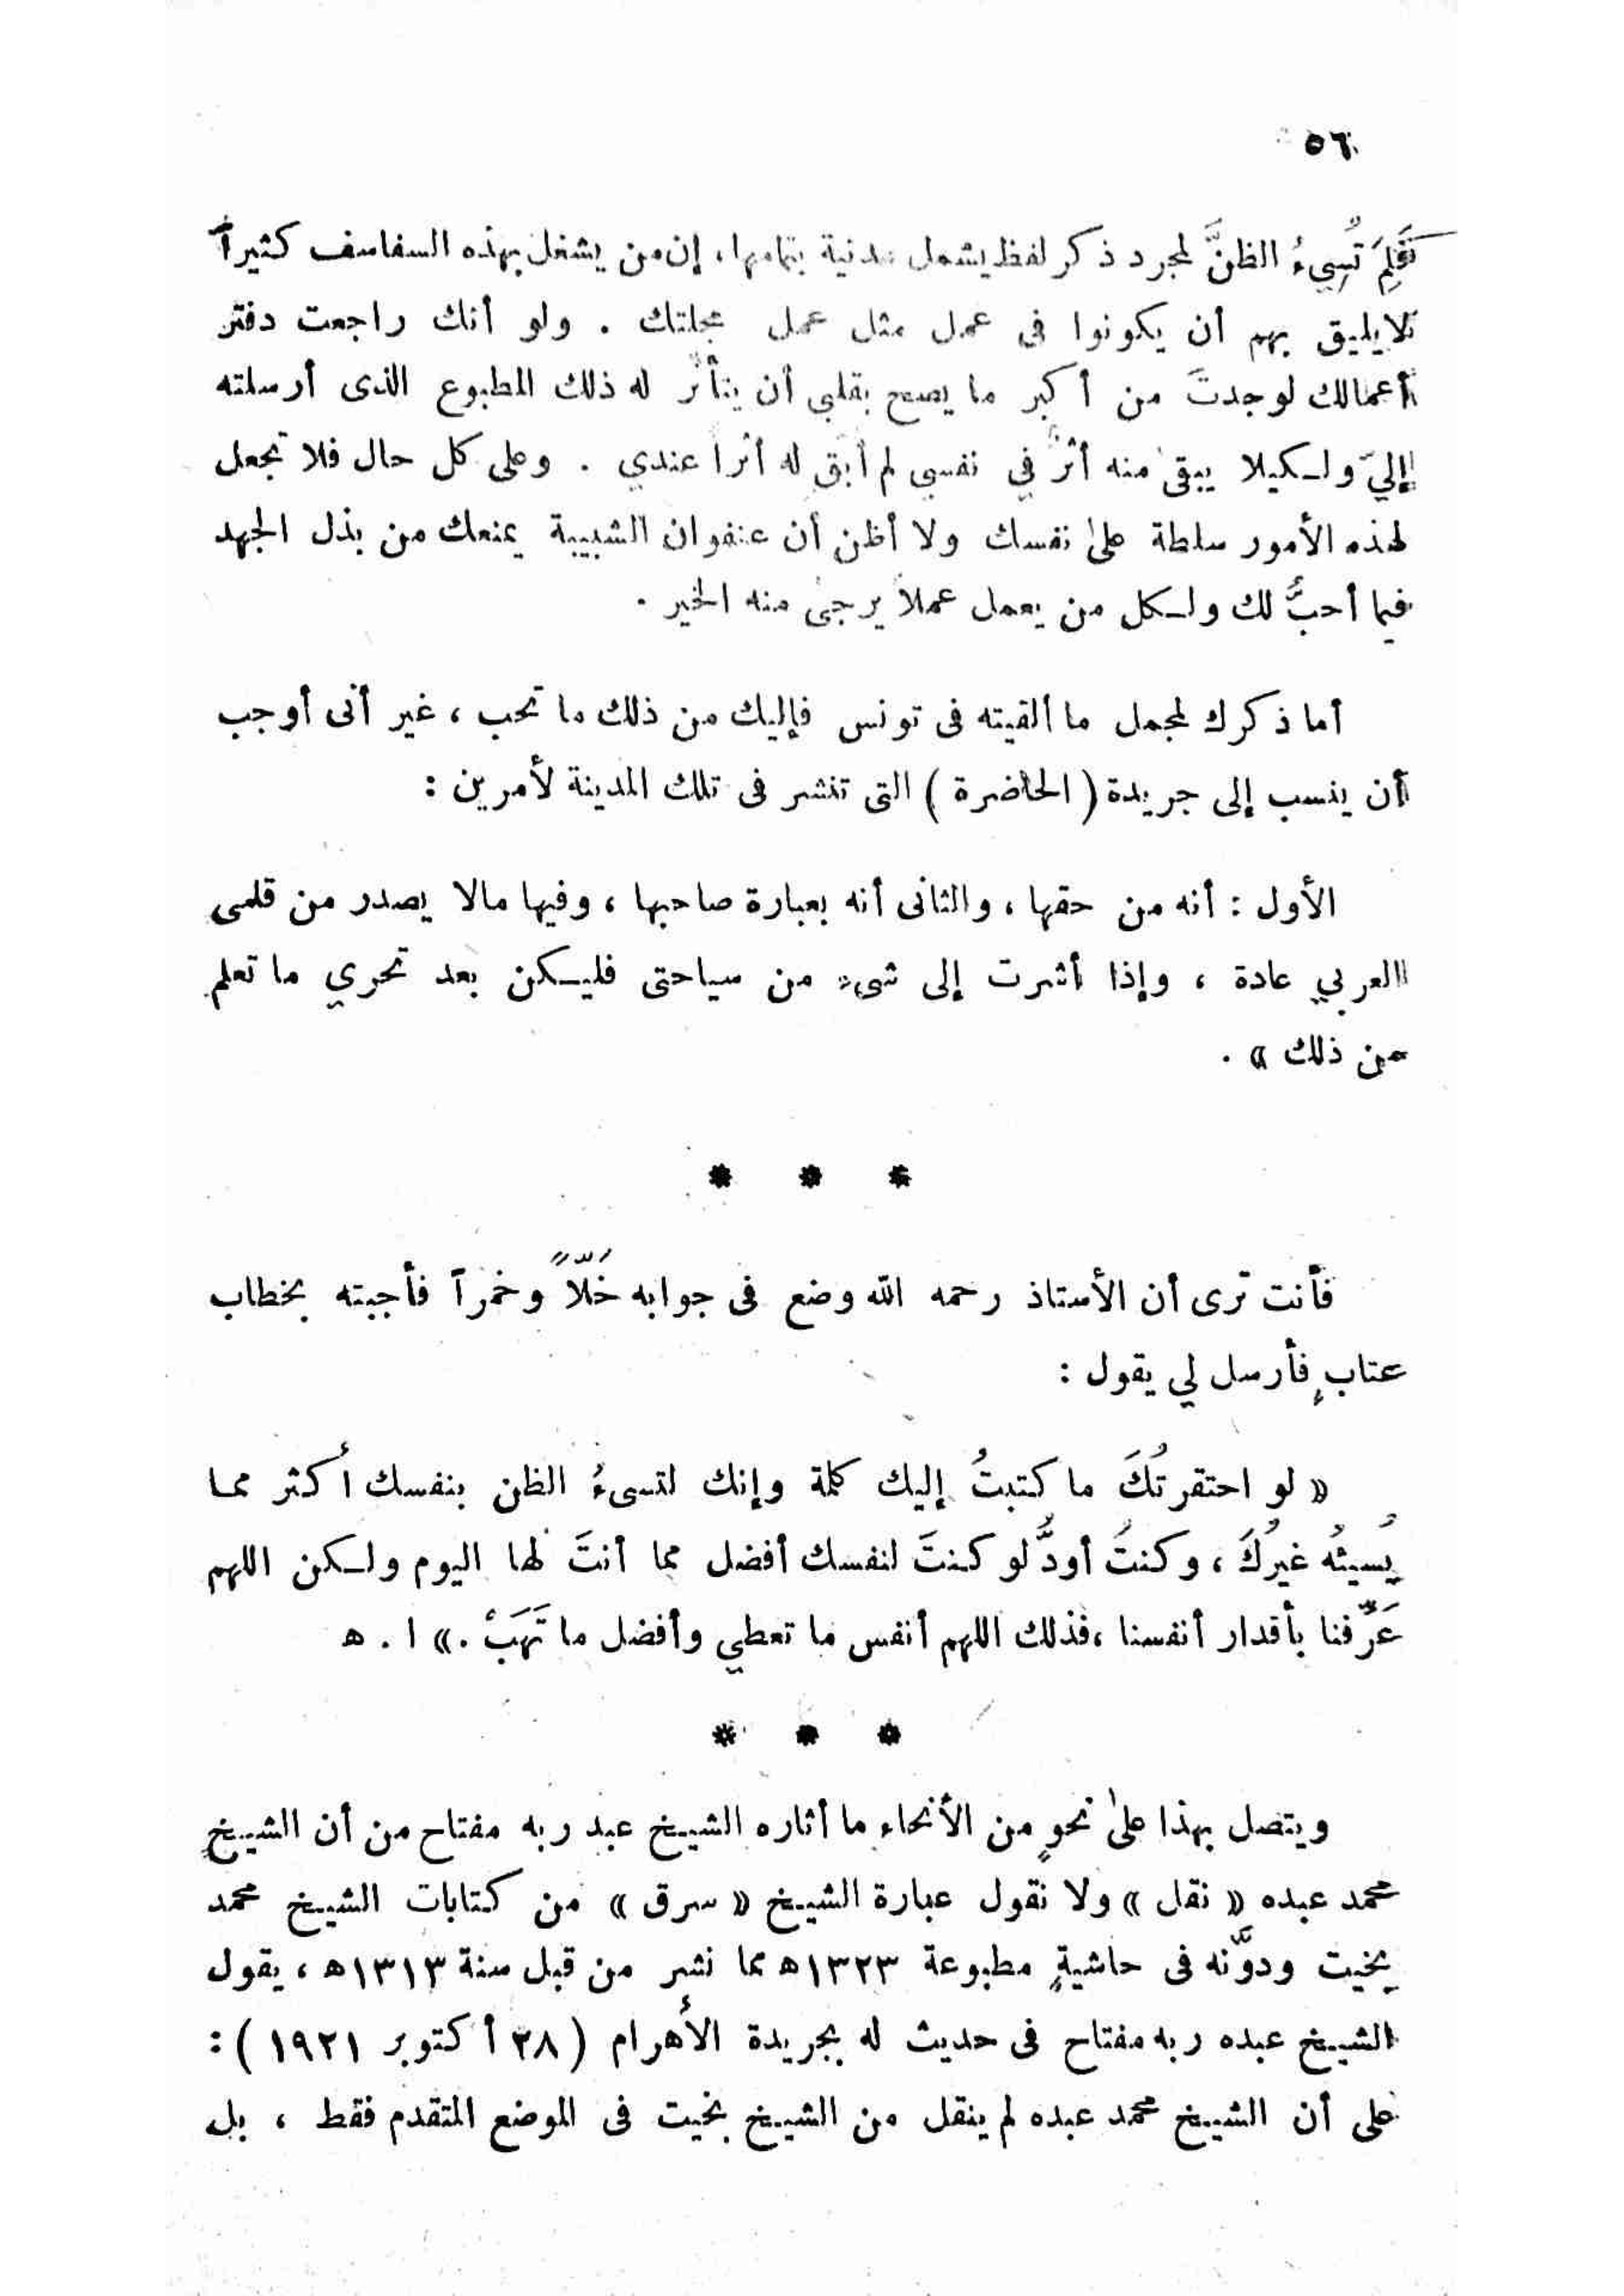 ٥٦
فَلِمَ تُسِيءُ الظنَّ لمجرد ذكر لفظ يشمل مدنية بتمامها، إن من يشغل بهذه السفاسف كثيراً
لا يليق بهم أن يكونوا فى عمل مثل عمل مجلتك . ولو أنك راجعت دفتر
أعمالك لوجدتَ من أكبر ما يصح بقلبى أن يتأثر له ذلك المطبوع الذى أرسلته
إليّ ولكيلا يبقى منه أثرٌ في نفسى لم أبق له أثرا عندي . وعلى كل حال فلا تجعل
لهذه الأمور سلطة على نفسك ولا أظن أن عنفوان الشبيبة يمنعك من بذل الجهد
فيما أحبُّ لك ولكل من يعمل عملاً يرجى منه الخير .
أما ذكرك لمجمل ما ألقيته فى تونس فإليك من ذلك ما تحب ، غير أنى أوجب
أن ينسب إلى جريدة ( الحاضرة ) التى تنشر فى تلك المدينة لأمرين :
الأول : أنه من حقها ، والثانى أنه بعبارة صاحبها ، وفيها مالا يصدر من قلمى
العربي عادة ، وإذا أشرت إلى شىء من سياحتى فليكن بعد تحري ما تعلم
من ذلك » .
* * *
فأنت ترى أن الأستاذ رحمه الله وضع فى جوابه خَلّاً وخمراً فأجبته بخطاب
عتابٍ فأرسل لي يقول :
« لو احتقرتُكَ ما كتبتُ إليك كلمة وإنك لتسىءُ الظن بنفسك أكثر مما
يُسيئُه غيرُكَ ، وكنتُ أودُّ لو كنتَ لنفسك أفضل مما أنتَ لها اليوم ولكن اللهم
عَرِّفنا بأقدار أنفسنا ، فذلك اللهم أنفس ما تعطي وأفضل ما تَهَبْ . » ا . ه
* * *
ويتصل بهذا على نحوٍ من الأنحاء ما أثاره الشيخ عبد ربه مفتاح من أن الشيخ
محمد عبده « نقل » ولا نقول عبارة الشيخ « سرق » من كتابات الشيخ محمد
بخيت ودوَّنه فى حاشيةٍ مطبوعة ١٣٢٣ه مما نشر من قبل سنة ١٣١٣ه ، يقول
الشيخ عبده ربه مفتاح فى حديث له بجريدة الأهرام ( ٢٨ أكتوبر ١٩٢١ ) :
على أن الشيخ محمد عبده لم ينقل من الشيخ بخيت فى الموضع المتقدم فقط ، بل